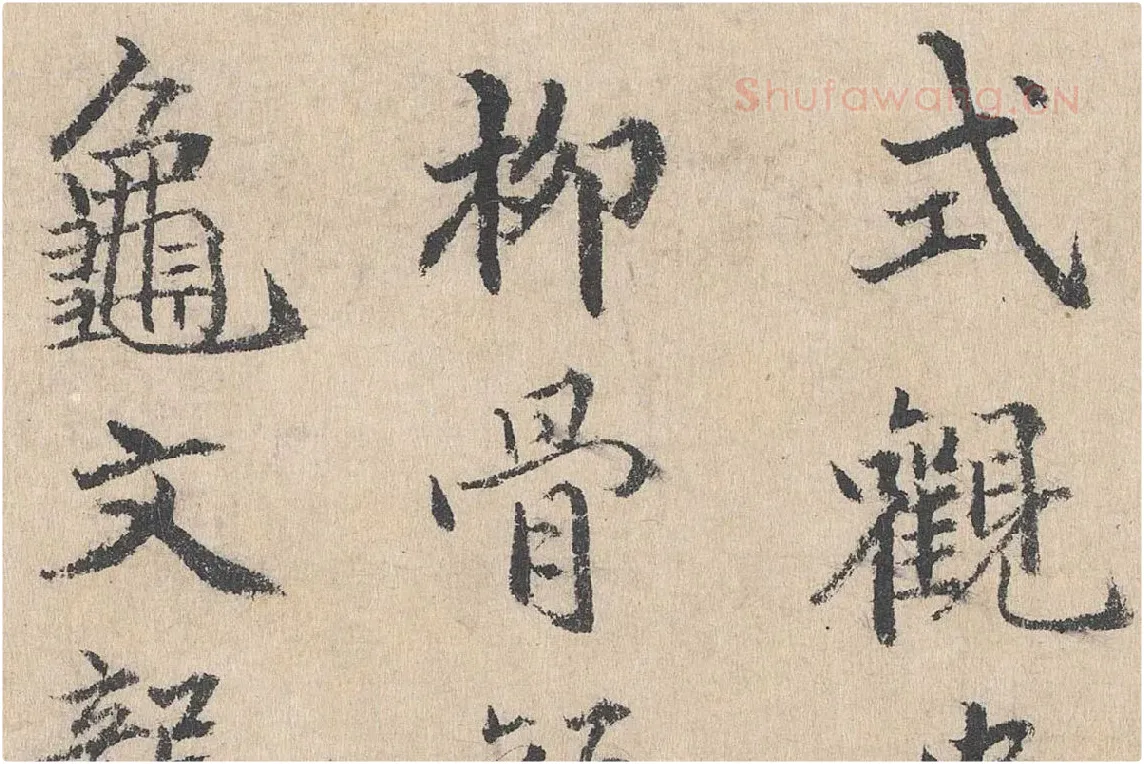 Shufawang.CN
式觀
柳骨
龜文